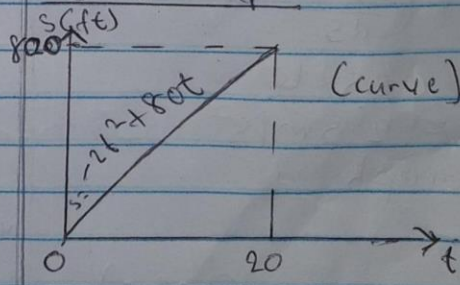 s(ft)
800
s= -2t²+80t
(curve)
0
20
t